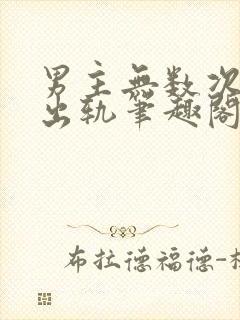 男主無数次
出轨筆趣閣
布拉德福德-杜